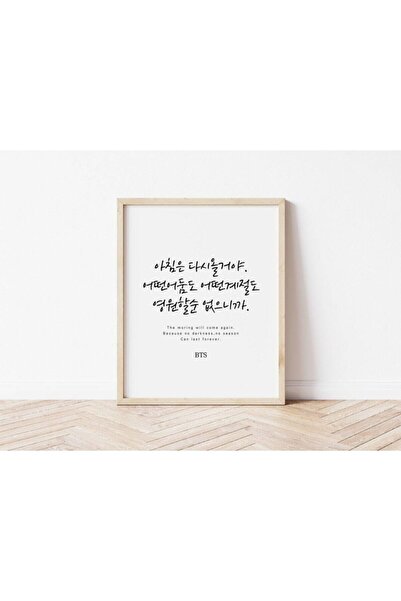 아침은 다시올거야.
어떤어둠도 어떤계절도
영원할순 없으니까.
The moring will come again.
Because no darkness,no season
Can last forever.
BTS